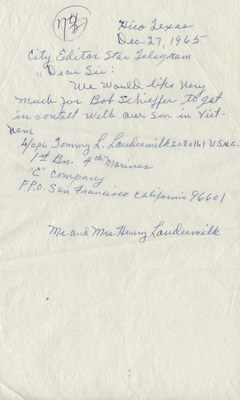 Hico Texas
Dec. 27, 1965
City Editor Star Telegram
"Dear Sir:
We Would like Very
Much for Bob Schieffer To get
in contact With our Son in Viet-
nam
L/cpl Tommy L. Laudermilk 2080161 U.S.M.C.
1st Bn. 4th Marines
"C" Company
F.P.O. San Francisco California 96601
Mr. and Mrs. Henry Laudermilk